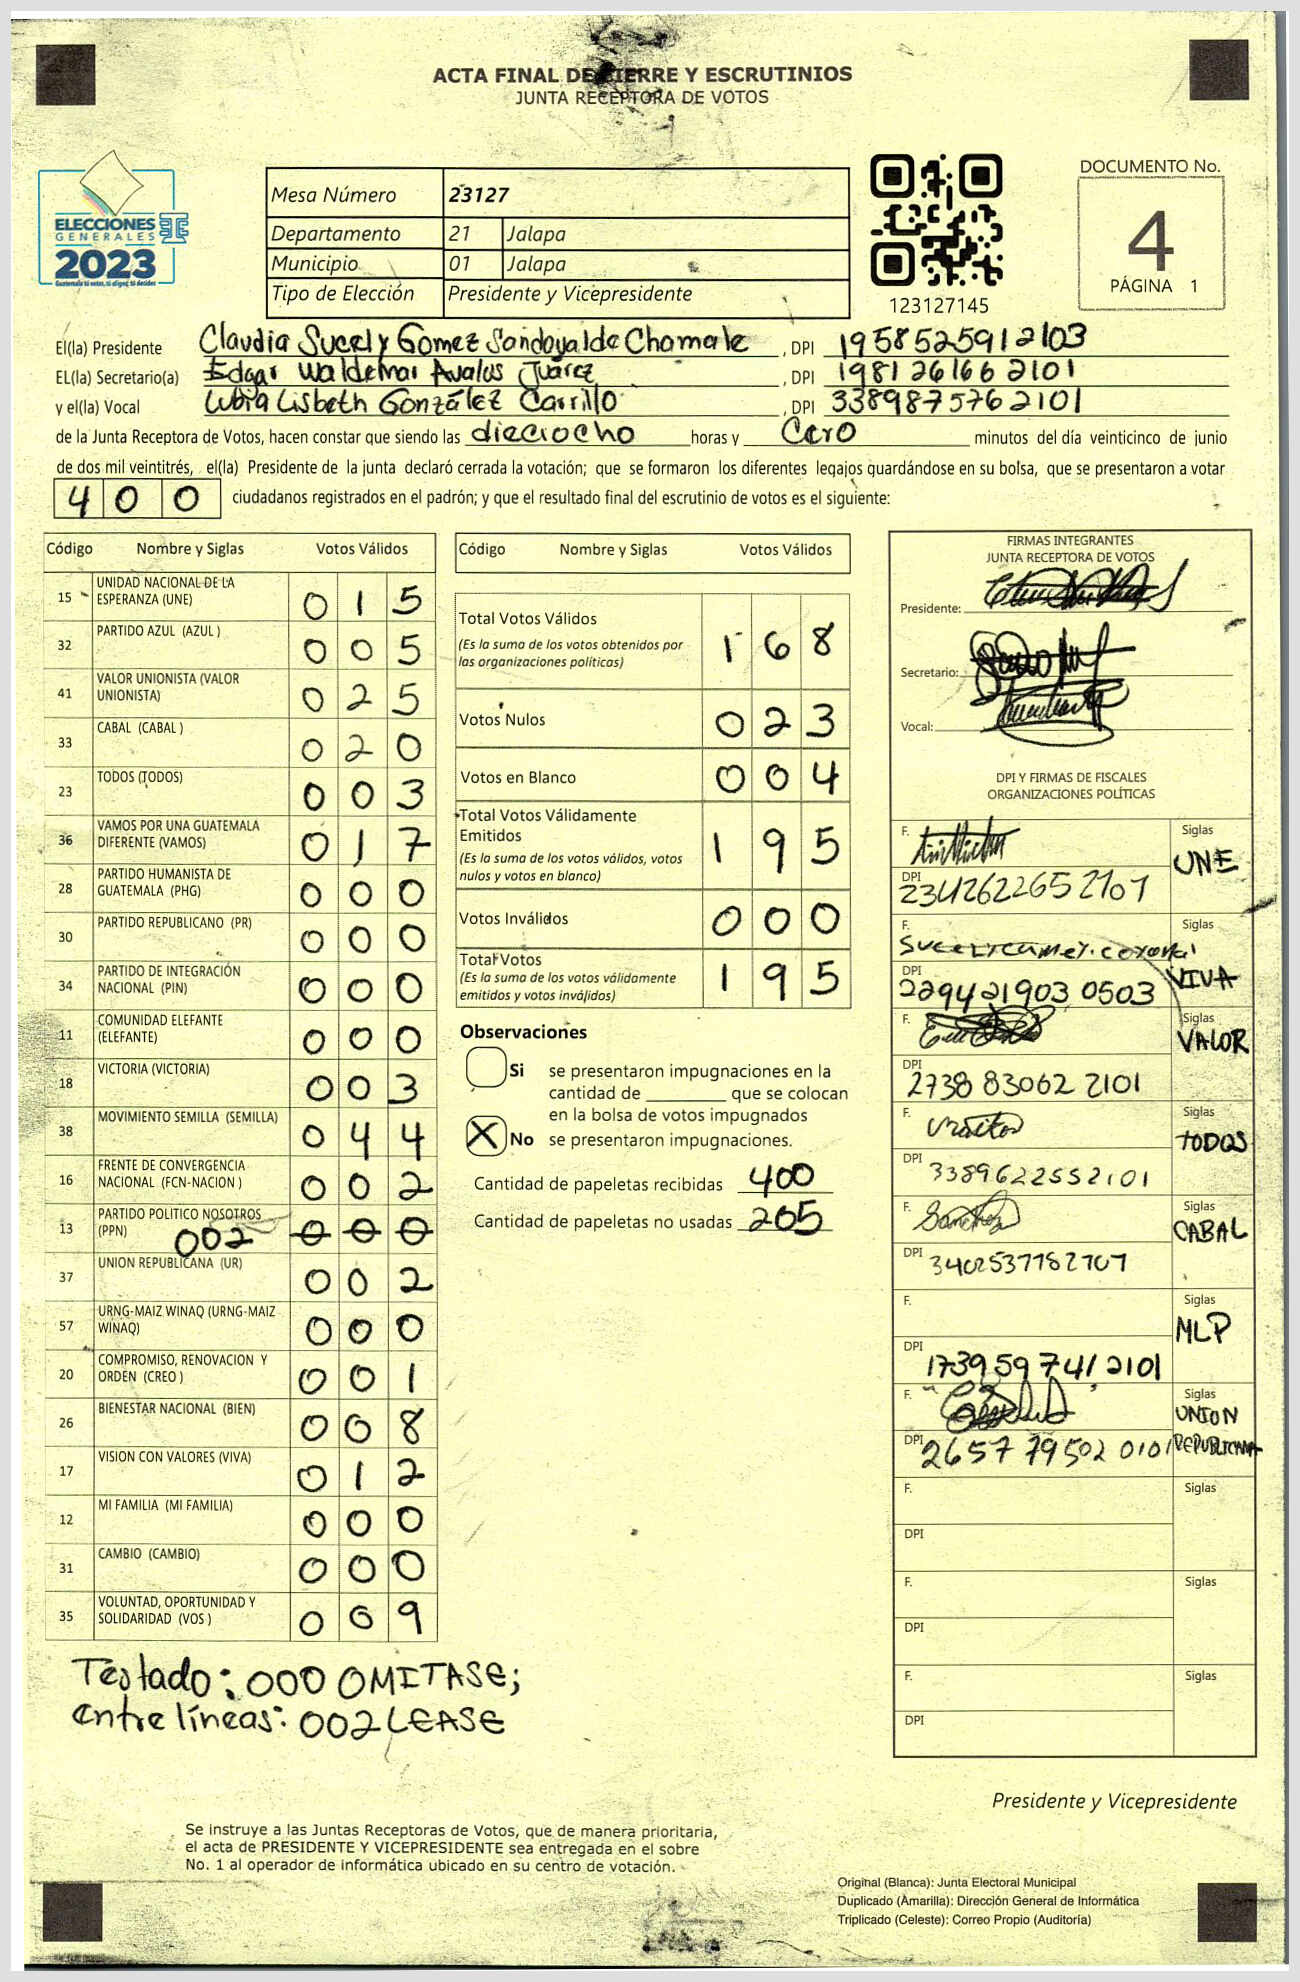 ACTA FINAL DE CIERRE Y ESCRUTINIOS
JUNTA RECEPTORA DE VOTOS
ELECCIONES
GENERALES
2023
Guatemala tú votas, tú eliges, tú decides
Mesa Número 23127
Departamento 21 Jalapa
Municipio 01 Jalapa
Tipo de Elección Presidente y Vicepresidente
123127145
DOCUMENTO No.
4
PÁGINA 1
El(la) Presidente Claudia Sucely Gomez Sandoval de Chamale , DPI 1958525912103
EL(la) Secretario(a) Edgar Waldemar Avalos Juárez , DPI 1981261662101
y el(la) Vocal Lubia Lisbeth González Carrillo , DPI 3389875762101
de la Junta Receptora de Votos, hacen constar que siendo las dieciocho horas y Cero minutos del día veinticinco de junio
de dos mil veintitrés, el(la) Presidente de la junta declaró cerrada la votación; que se formaron los diferentes legajos guardándose en su bolsa, que se presentaron a votar
400 ciudadanos registrados en el padrón; y que el resultado final del escrutinio de votos es el siguiente:
Código Nombre y Siglas Votos Válidos
15 UNIDAD NACIONAL DE LA ESPERANZA (UNE) 015
32 PARTIDO AZUL (AZUL ) 005
41 VALOR UNIONISTA (VALOR UNIONISTA) 025
33 CABAL (CABAL ) 020
23 TODOS (TODOS) 003
36 VAMOS POR UNA GUATEMALA DIFERENTE (VAMOS) 017
28 PARTIDO HUMANISTA DE GUATEMALA (PHG) 000
30 PARTIDO REPUBLICANO (PR) 000
34 PARTIDO DE INTEGRACIÓN NACIONAL (PIN) 000
11 COMUNIDAD ELEFANTE (ELEFANTE) 000
18 VICTORIA (VICTORIA) 003
38 MOVIMIENTO SEMILLA (SEMILLA) 044
16 FRENTE DE CONVERGENCIA NACIONAL (FCN-NACION ) 002
13 PARTIDO POLITICO NOSOTROS (PPN) 002 000
37 UNION REPUBLICANA (UR) 002
57 URNG-MAIZ WINAQ (URNG-MAIZ WINAQ) 000
20 COMPROMISO, RENOVACION Y ORDEN (CREO ) 001
26 BIENESTAR NACIONAL (BIEN) 008
17 VISION CON VALORES (VIVA) 012
12 MI FAMILIA (MI FAMILIA) 000
31 CAMBIO (CAMBIO) 000
35 VOLUNTAD, OPORTUNIDAD Y SOLIDARIDAD (VOS ) 009
Testado: 000 OMITASE;
entre líneas: 002 LEASE
Código Nombre y Siglas Votos Válidos
Total Votos Válidos 168
(Es la suma de los votos obtenidos por
las organizaciones políticas)
Votos Nulos 023
Votos en Blanco 004
Total Votos Válidamente
Emitidos 195
(Es la suma de los votos válidos, votos
nulos y votos en blanco)
Votos Inválidos 000
Total Votos 195
(Es la suma de los votos válidamente
emitidos y votos inválidos)
Observaciones
Si se presentaron impugnaciones en la
cantidad de ________ que se colocan
en la bolsa de votos impugnados
X No se presentaron impugnaciones.
Cantidad de papeletas recibidas 400
Cantidad de papeletas no usadas 205
FIRMAS INTEGRANTES
JUNTA RECEPTORA DE VOTOS
Presidente:
Secretario:
Vocal:
DPI Y FIRMAS DE FISCALES
ORGANIZACIONES POLÍTICAS
F. Siglas UNE
DPI 2342622652101
F. Siglas VIVA
DPI 2294219030503
F. Siglas VALOR
DPI 2738 83062 2101
F. Siglas TODOS
DPI 3389622552101
F. Sanchez Siglas CABAL
DPI 3402537782107
F. Siglas MLP
DPI 1739597412101
F. Siglas UNION REPUBLICANA
DPI 2657 79502 0101
F. Siglas
DPI
F. Siglas
DPI
F. Siglas
DPI
Presidente y Vicepresidente
Se instruye a las Juntas Receptoras de Votos, que de manera prioritaria,
el acta de PRESIDENTE Y VICEPRESIDENTE sea entregada en el sobre
No. 1 al operador de informática ubicado en su centro de votación.
Original (Blanca): Junta Electoral Municipal
Duplicado (Amarilla): Dirección General de Informática
Triplicado (Celeste): Correo Propio (Auditoría)